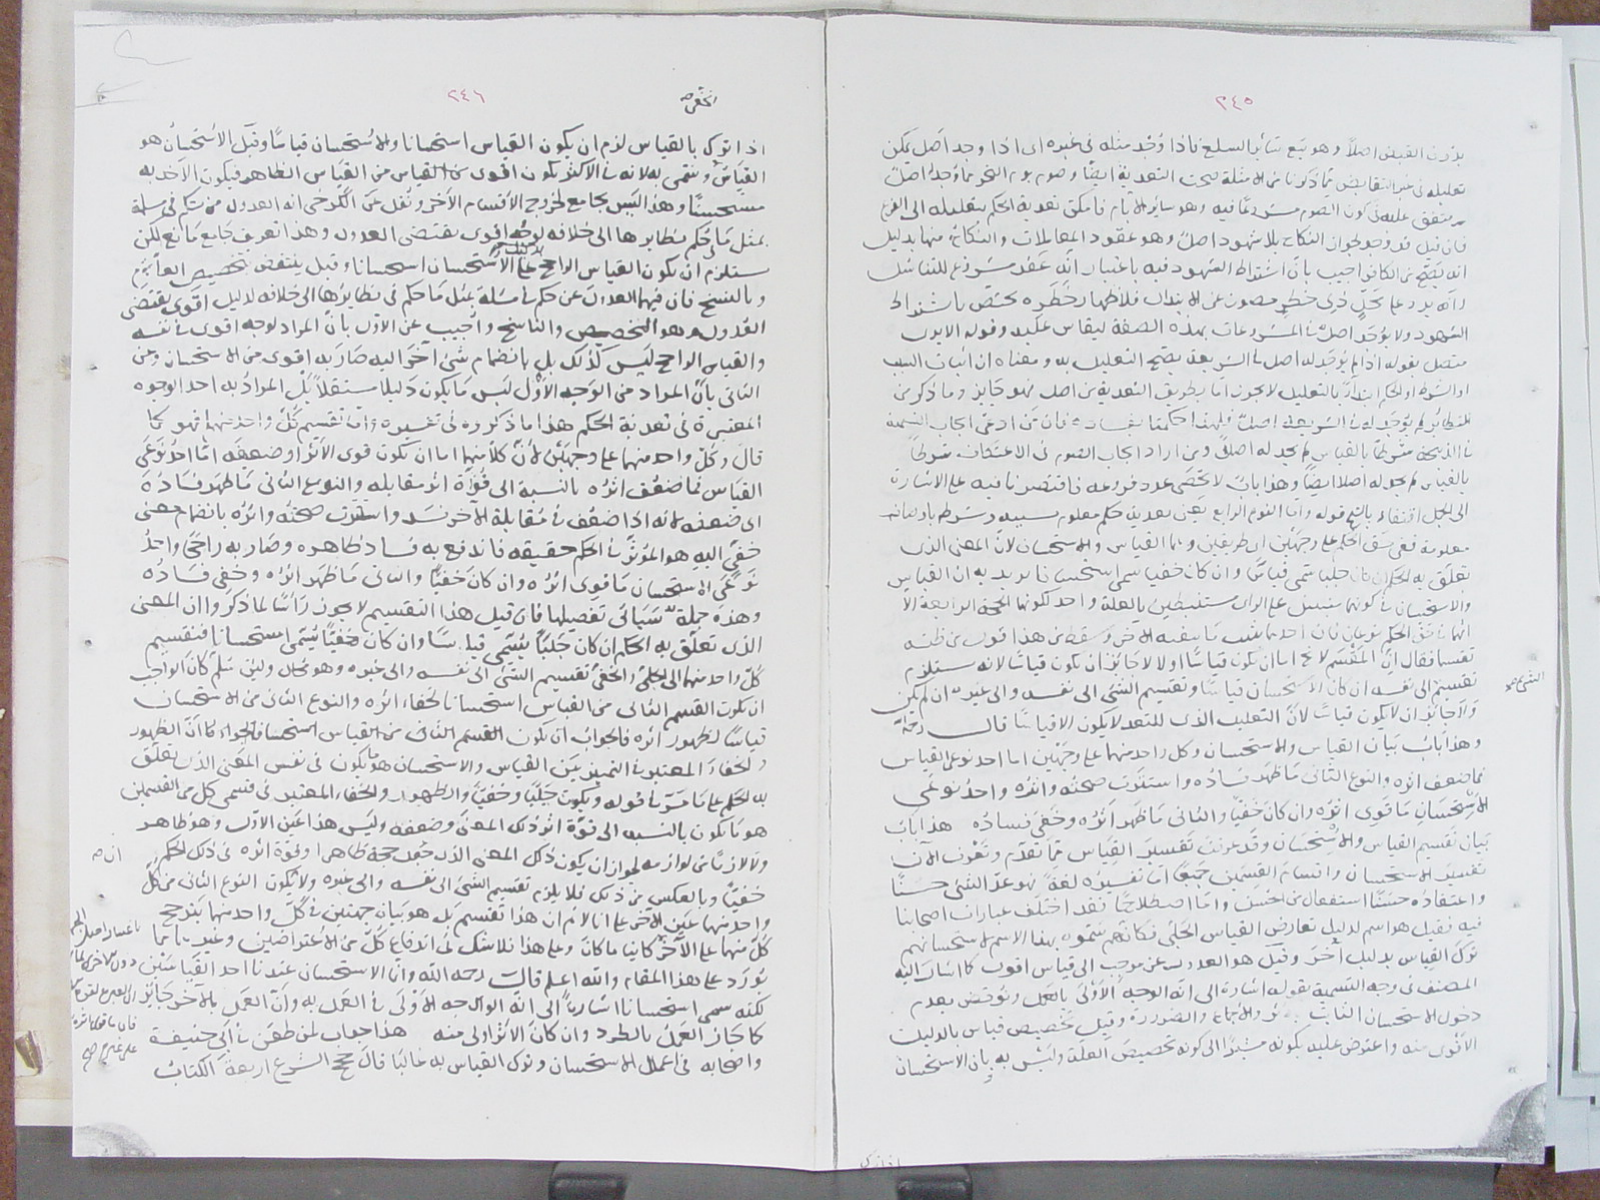 ٢٤٥
بدون القبض اصلا وهو بيع سائر السلع فاذا وجد مثله فى غيره اى اذا وجد اصل يمكن
تعليله فى غير التقابض مما ذكرنا من الامثلة صحت التعدية ايضا وصوم يوم النحر مما وجد اصل
متفق عليه فى كون الصوم مشروعا فيه وهو سائر الايام فامكن تعدية الحكم بتعليله الى الفرع
فان قيل قد وجد لجواز النكاح بلا شهود اصل وهو عقود المعاملات والنكاح منها بدليل
انه يصح من الكافر اجيب بان اشتراط الشهود فيه باعتبار انه عقد مشروع للتناسل
وانه يرد على محل ذى خطر مصون عن الابتذال فلاظهار خطره يختص باشتراط
الشهود ولا يوجد اصل فى المشروعات بهذه الصفة ليقاس عليه وقوله الا بون
متصل بقوله اذا لم يوجد له اصل فى الشريعة يصح التعليل به ومعناه ان اثبات السبب
او الشرط او الحكم ابتداء بالتعليل لا يجوز اما بطريق التعدية من اصل فهو جايز وما ذكر من
النظائر لم يوجد له فى الشريعة اصل فلهذا حكمنا بفساده فان من ادعى ايجاب التسمية
فى الذبيحة شرطا بالقياس لم يجد له اصلا ومن اراد ايجاب الصوم فى الاعتكاف شرطا
بالقياس لم يجد له اصلا ايضا وهذا باب لا تحصى عدد فروعه فاقتصرنا فيه على الاشارة
الى الجمل قوله واما النوع الرابع يعنى تعدية حكم معلوم بسببه وشرطه باوصاف
معلومة فعلى وجهين اى طريقين وهما القياس والاستحسان لان المعنى الذى
تعلق به الحكم ان كان جليا سمى قياسا وان كان خفيا سمى استحسانا يريد به ان القياس
والاستحسان فى كونهما مستنبطين بالعلة واحد لكونهما الحجة الرابعة الا
تقسيما فقال ان المقسم لا يخ اما ان يكون قياسا او لا لا جائز ان يكون قياسا لانه يستلزم
تقسيم الى نفسه ان كان الاستحسان قياسا وتقسيم الشئ الى نفسه والى غيره ان لم يكن
ولا جائز ان لا يكون قياسا لان التعليل الذى للتعد لا يكون الا قياسا قال رحمه
وهذا باب بيان القياس والاستحسان وكل واحد منهما على وجهين اما احد نوعى القياس
فما ضعف اثره والنوع الثانى ما ظهر فساده واستترت صحته واثره واحد نوعى
الاستحسان ما قوى اثره وان كان خفيا والثانى ما ظهر اثره وخفى فساده هذا باب
بيان تقسيم القياس والاستحسان وقد عرفت تفسير القياس مما تقدم وتعرف الآن
تفسير الاستحسان وانقسام القسمين جميعا اما تفسيره لغة فهو عد الشئ حسنا
واعتقاده حسنا استفعال من الحسن واما اصطلاحا فقد اختلف عبارات اصحابنا
فيه فقيل هو اسم لدليل تعارض القياس الجلى فكانهم سموه بهذا الاسم لاستحسانهم
ترك القياس بدليل آخر وقيل هو العدول عن موجب الى قياس اقوى كما اشار اليه
المصنف فى وجه التسمية بقوله اشارة الى انه الوجه الاولى بالعمل ونوقض بعدم
دخول الاستحسان الثابت بالاثر والاجماع والضرورة وقيل تخصيص قياس بالدليل
الاقوى منه واعترض عليه بكونه مشيرا الى كونه تخصيص العلة وليس به بان الاستحسان
٢٤٦
اذا ترك بالقياس لزم ان يكون القياس استحسانا والاستحسان قياسا وقيل الاستحسان هو
القياس وسمى به لانه فى الاكثر يكون اقوى من القياس الظاهر فيكون الاخذ به
مستحسنا وهذا ليس بجامع لخروج الاقسام الاخر ونقل عن الكرخى انه العدول من حكم فى مسئلة
بمثل ما حكم بنظايرها الى خلافه لوجه اقوى يقتضى العدول وهذا تعريف جامع مانع لكن
يستلزم ان يكون القياس الراجح على الاستحسان استحسانا وقيل ينتقض بتخصيص العام
وبالنسخ فان فيهما العدول عن حكم فى مسئلة بمثل ما حكم فى نظايرها الى خلافه لدليل اقوى يقتضى
العدول وهو التخصيص والناسخ واجيب عن الاول بان المراد لوجه اقوى فى نفسه
والقياس الراجح ليس كذلك بل بانضمام شئ آخر اليه صار به اقوى من الاستحسان وعن
الثانى بان المراد من الوجه الاول ليس ما يكون دليلا مستقلا بل المراد به احد الوجوه
المعتبرة فى تعدية الحكم هذا ما ذكروه فى تفسيره واما تقسيم كل واحد منهما فهو كما
قال وكل واحد منهما على وجهين لان كلا منهما اما ان تكون قوى الاثر او ضعفه اما احد نوعى
القياس فما ضعف اثره بالنسبة الى قوة اثر مقابله والنوع الثانى ما ظهر فساده
اى ضعفه لانه اذا ضعف فى مقابلة الآخر فسد واستترت صحته واثره بانضمام معنى
خفى اليه هو المؤثر فى الحكم حقيقه فاندفع به فساد ظاهره وصار به راجحا واحد
نوعى الاستحسان ما قوى اثره وان كان خفيا والثانى ما ظهر اثره وخفى فساده
وهذه جملة سيأتى تفصيلها فان قيل هذا التقسيم لا يجوز راسا لما ذكروا ان المعنى
الذى تعلق به الحكم ان كان جليا يسمى قياسا وان كان خفيا يسمى استحسانا فتقسيم
كل واحد منهما الى الجلى والخفى تقسيم الشئ الى نفسه والى غيره وهو محال ولئن سلم كان الواجب
ان يكون القسم الثانى من القياس استحسانا لخفاء اثره والنوع الثانى من الاستحسان
قياسا لظهور اثره فالجواب ان يكون القسم الثانى من القياس استحسانا
والخفاء المعتبر فى التمييز بين القياس والاستحسان هو ما يكون فى نفس المعنى الذى تعلق
به الحكم على ما مر فى قوله ويكون جليا وخفيا والظهور والخفاء المعتبر فى قسمى كل من القسمين
هو ما يكون بالنسبة الى قوة اثر ذلك المعنى وضعفه وليس هذا عين الاول وهو ظاهر
ولا لازما من لوازمه لجواز ان يكون ذلك المعنى الذى ظاهرا وقوة اثره فى ذلك الحكم
خفيا وبالعكس من ذلك فلا يلزم تقسيم الشئ الى نفسه والى غيره ولا يكون النوع الثانى من كل
واحد منهما عين الآخر على انا لا نم ان هذا تقسيم بل هو بيان جهتين فى كل واحد منهما يترجح
كل منهما على الآخر كائنا ما كان وعلى هذا فلا شك فى اندفاع كل من الاعتراضين وغيرهما مما
يورد على هذا المقام والله اعلم قال رحمه الله وانما الاستحسان عندنا احد القياسين
لكنه سمى استحسانا اشارة الى انه الوالوجه الاولى فى العمل به وان العمل بالآخر جايز
كما جاز العمل بالطرد وان كان الاثر اولى منه هذا جواب لمن طعن فى ابى حنيفة
واصحابه فى اعمال الاستحسان وترك القياس به غالبا قال حجج الشرع اربعة الكتاب